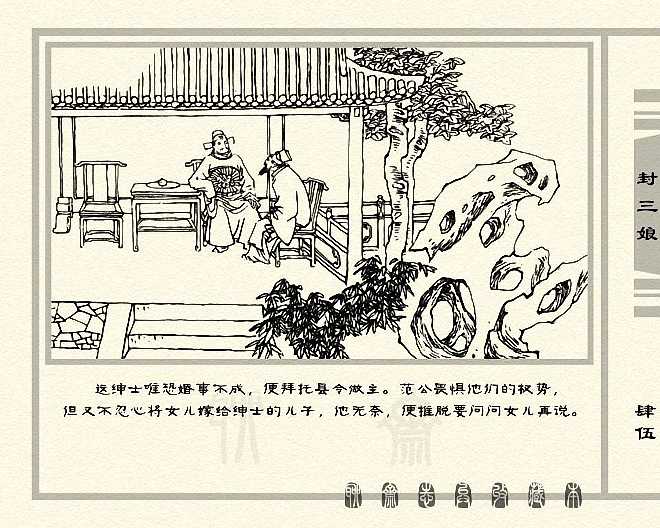 这绅士唯恐婚事不成，便拜托县令做主。范公畏惧他们的权势，
但又不忍心将女儿嫁给绅士的儿子，他无奈，便推脱要问问女儿再说。
封三娘
肆伍